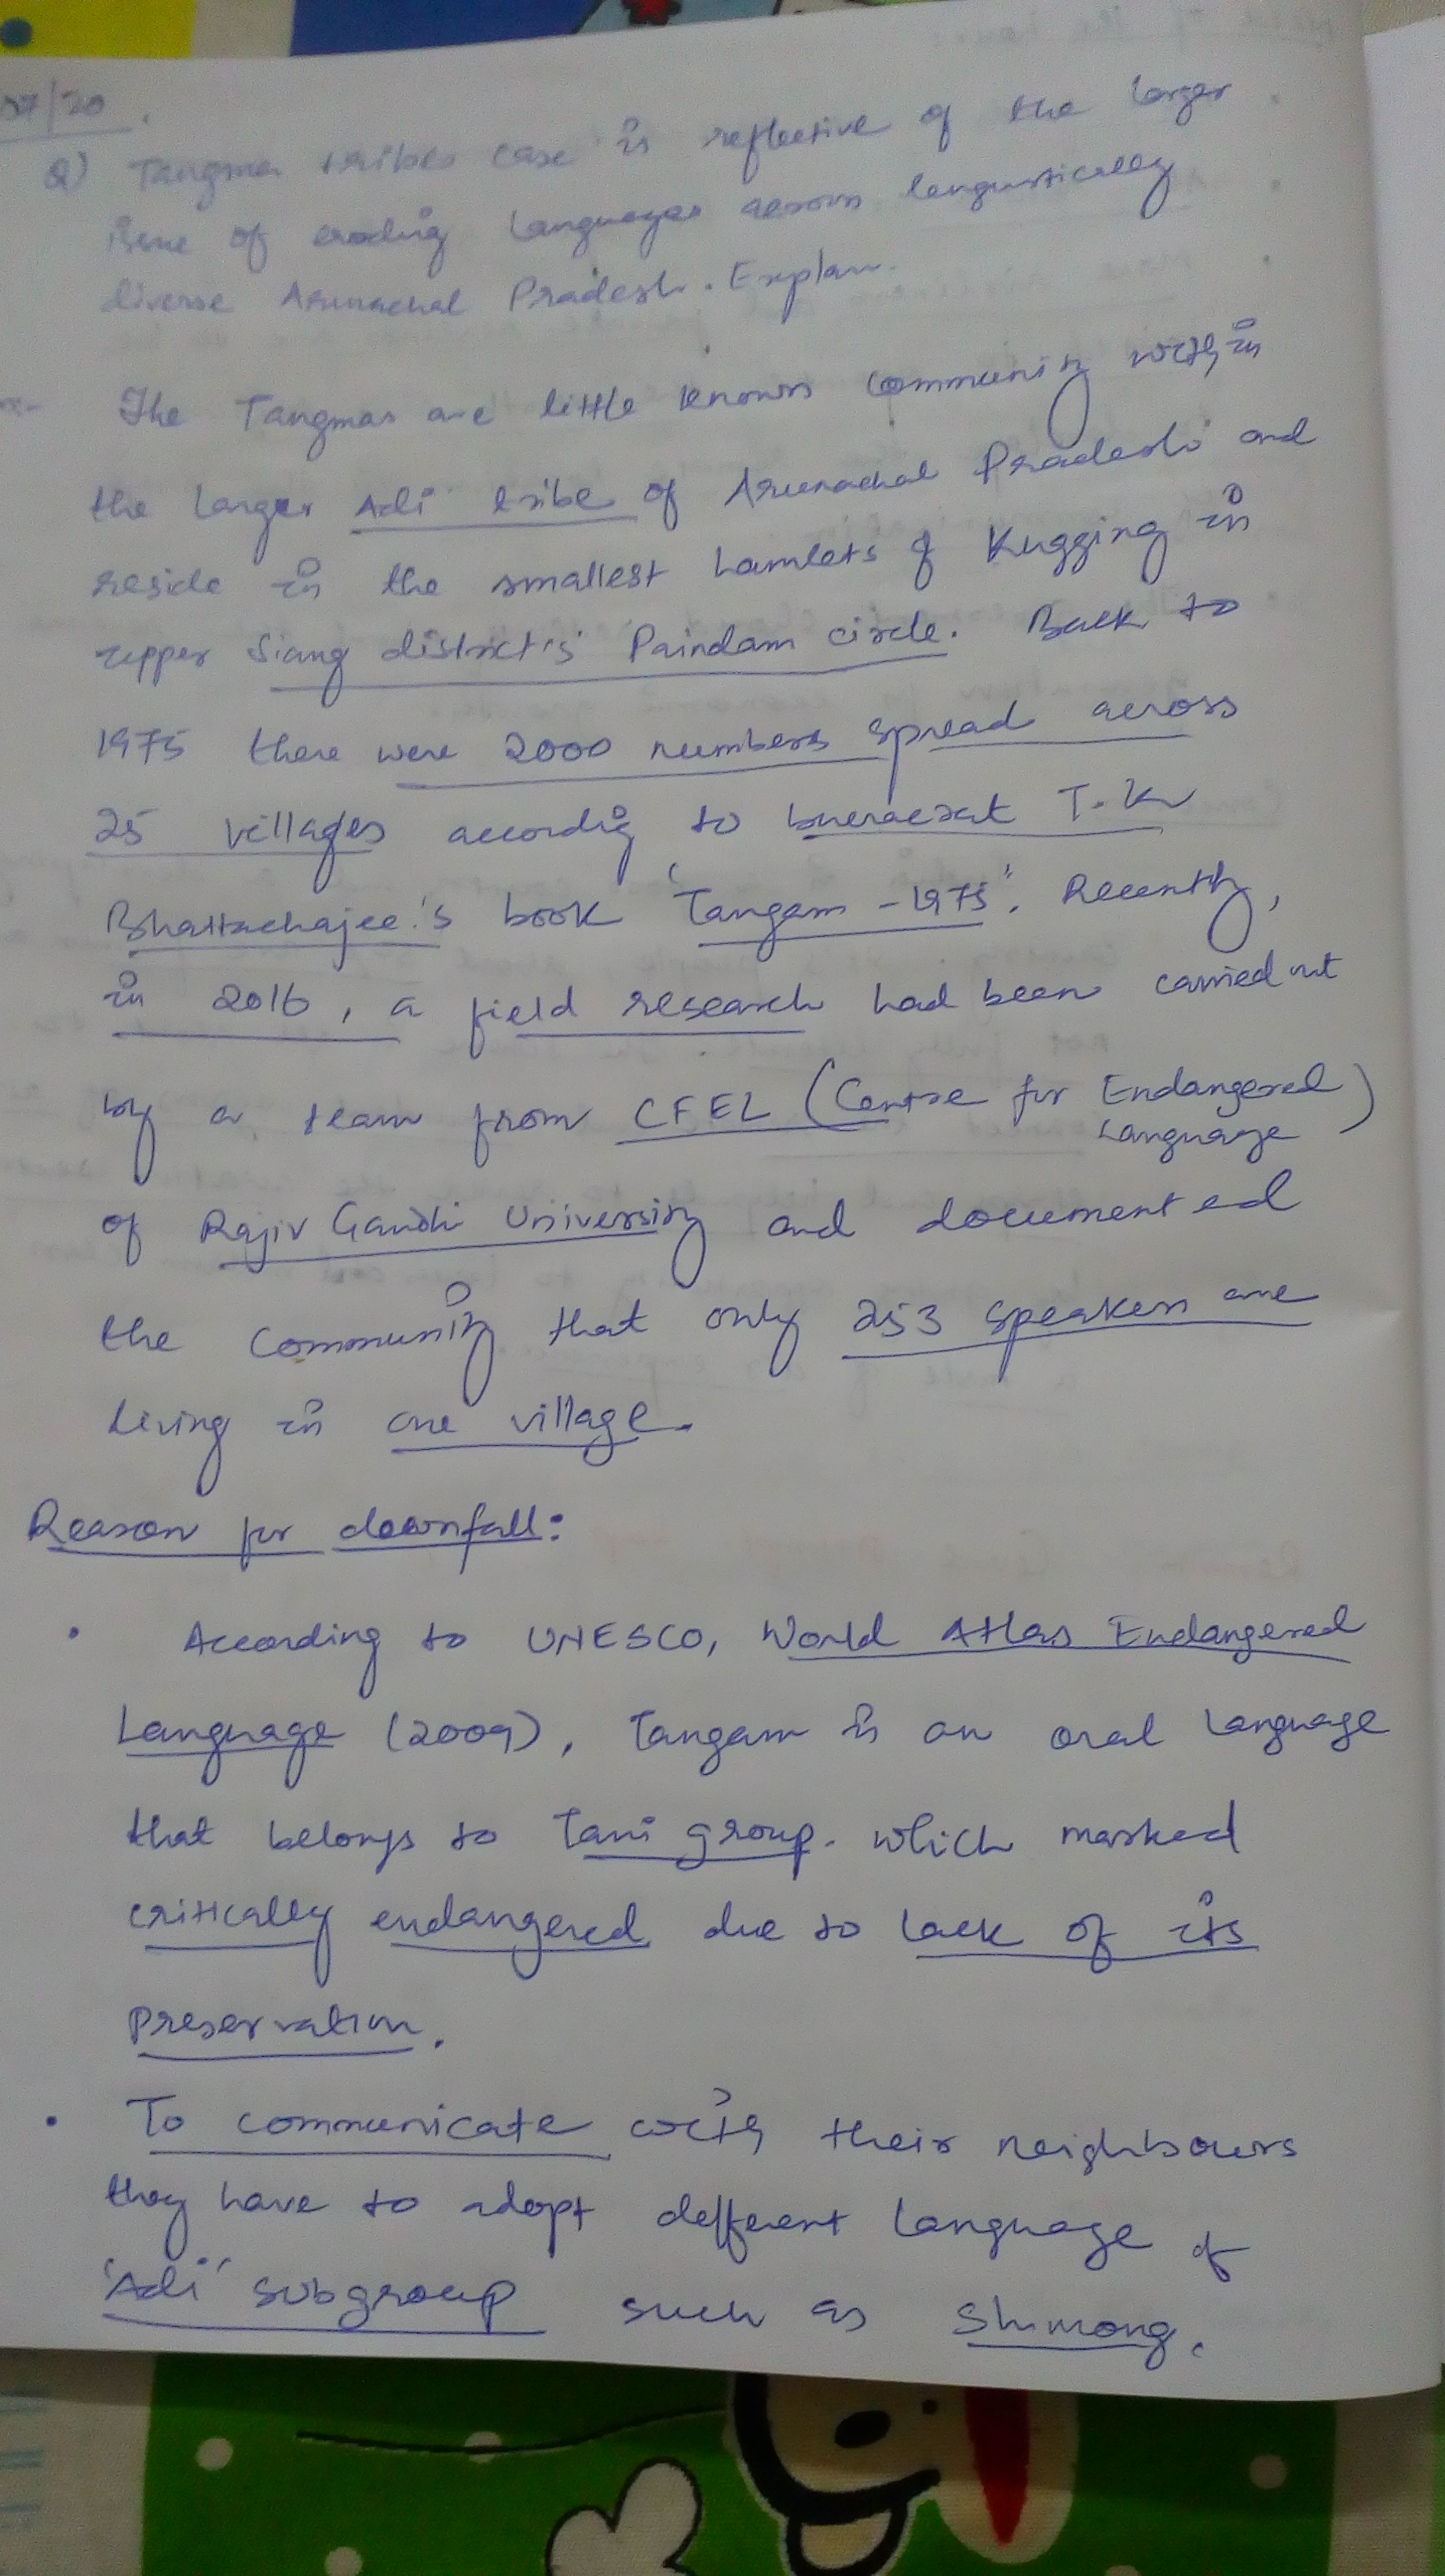 07/20.
Q) Tangma tribes case is reflective of the larger
issue of eroding languages across lenguistically
diverse Arunachal Pradesh. Explain.
The Tangmas are little known community within
the larger 'Adi' tribe of Arunachal Pradesh and
reside in the smallest hamlets of Kugging in
upper Siang district's Paindam circle. Back to
1975 there were 2000 numbers spread across
25 villages according to bueracrat T.K
Bhattachajee's book 'Tangam - 1975'. Recently,
in 2016, a field research had been carried out
by a team from CFEL (Centre for Endangered
Language)
of Rajiv Gandhi University and documented
the community that only 253 speakers are
living in one village.
Reason for downfall:
• According to UNESCO, World Atlas Endangered
Language (2009), Tangam is an oral language
that belongs to Tani group. which marked
critically endangered due to lack of its
preservation.
• To communicate with their neighbours
they have to adopt defferent language of
'Adi' subgroup such as Shimong.